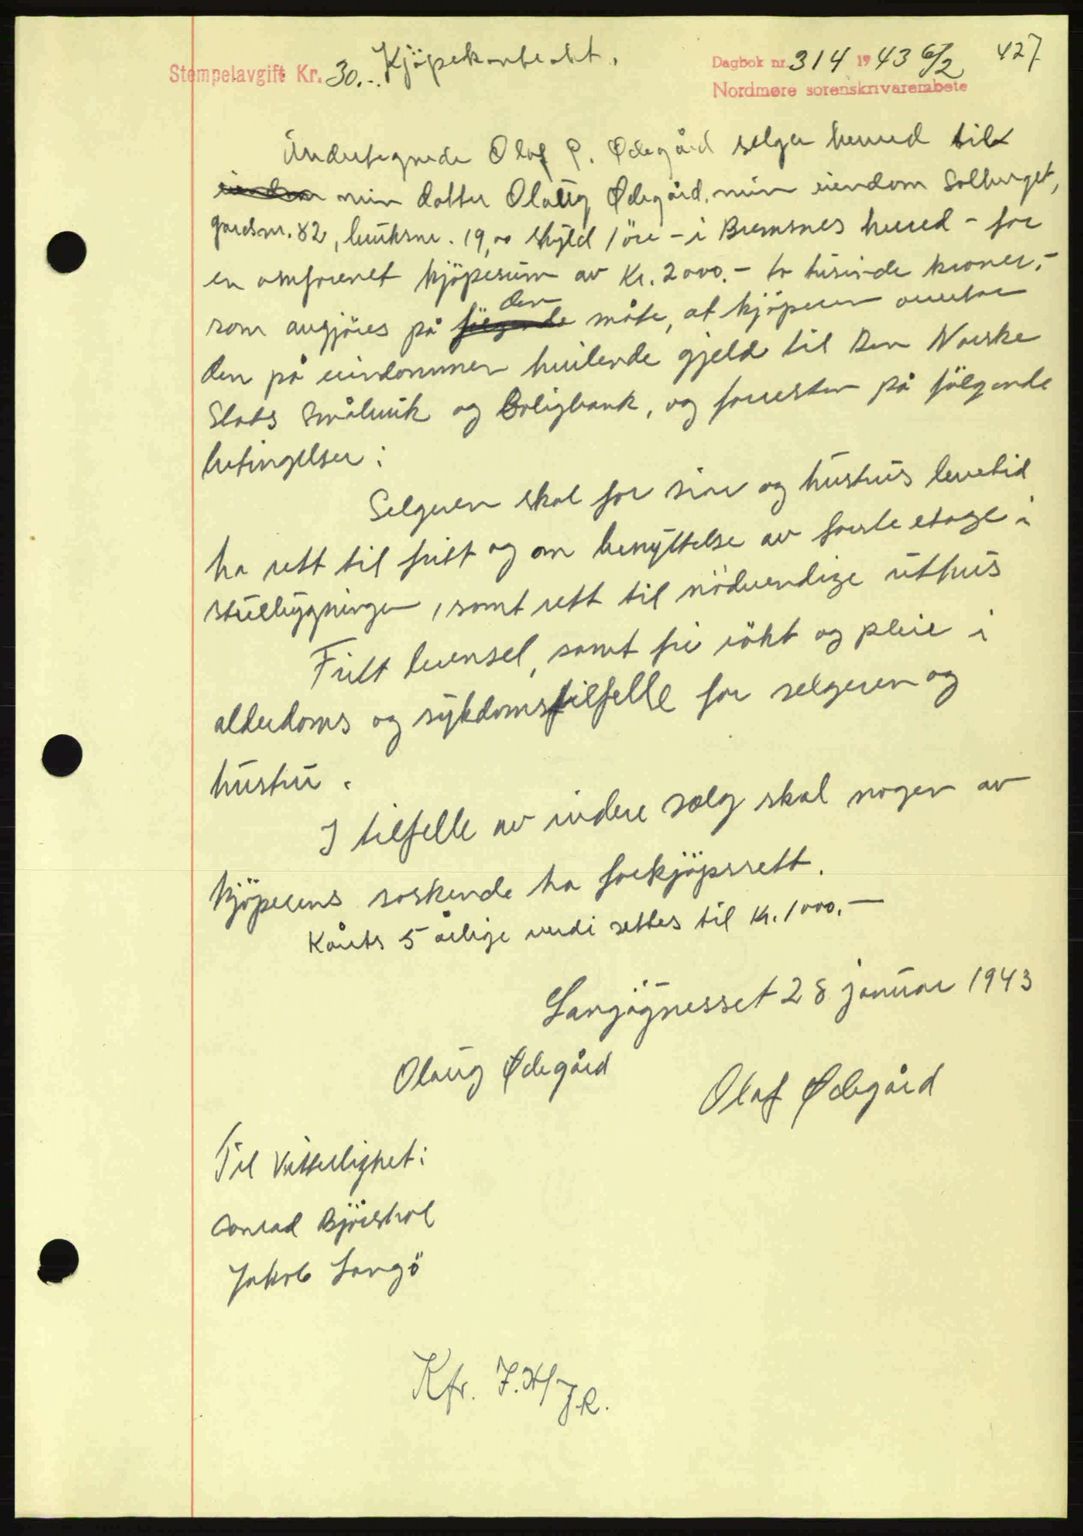 Stempelavgift Kr. 30.-. Kjöpekontrakt. Dagbok nr. 314 1943 6/2 427
Nordmøre sorenskriverembete
Undertegnede Olaf P. Ødegård selger herved til
eiendom min datter Olaug Ødegård, min eiendom Solberget,
gardsnr. 82, bruksnr. 19, av skyld 1 öre - i Bremsnes herred - for
en omforenet kjöpesum av Kr. 2000.- to tusinde kroner,-
som avgjöres på fölgende den måte, at kjöperen overtar
den på eiendommen hvilende gjeld til Den Norske
Stats Småbruk og Boligbank, og forresten på fölgende
betingelser:
Selgeren skal for sin og hustrus levetid
ha rett til fritt og om benyttelse av förste etage i
stuebygningen, samt rett til nödvendige uthus
Fritt brensel, samt fri rökt og pleie i
alderdoms og sykdomstilfelle for selgeren og
hustru.
I tilfelle av videre salg skal nogen av
kjöperens söskende ha forkjöpsrett.
Kårets 5 årlige verdi settes til Kr. 1000.-
Langöyneset 28 januar 1943
Olaug Ødegård
Olaf Ødegård
Til Vitterlighet:
Conrad Björshol
Jakob Langö
Kfr. J.H/JR.